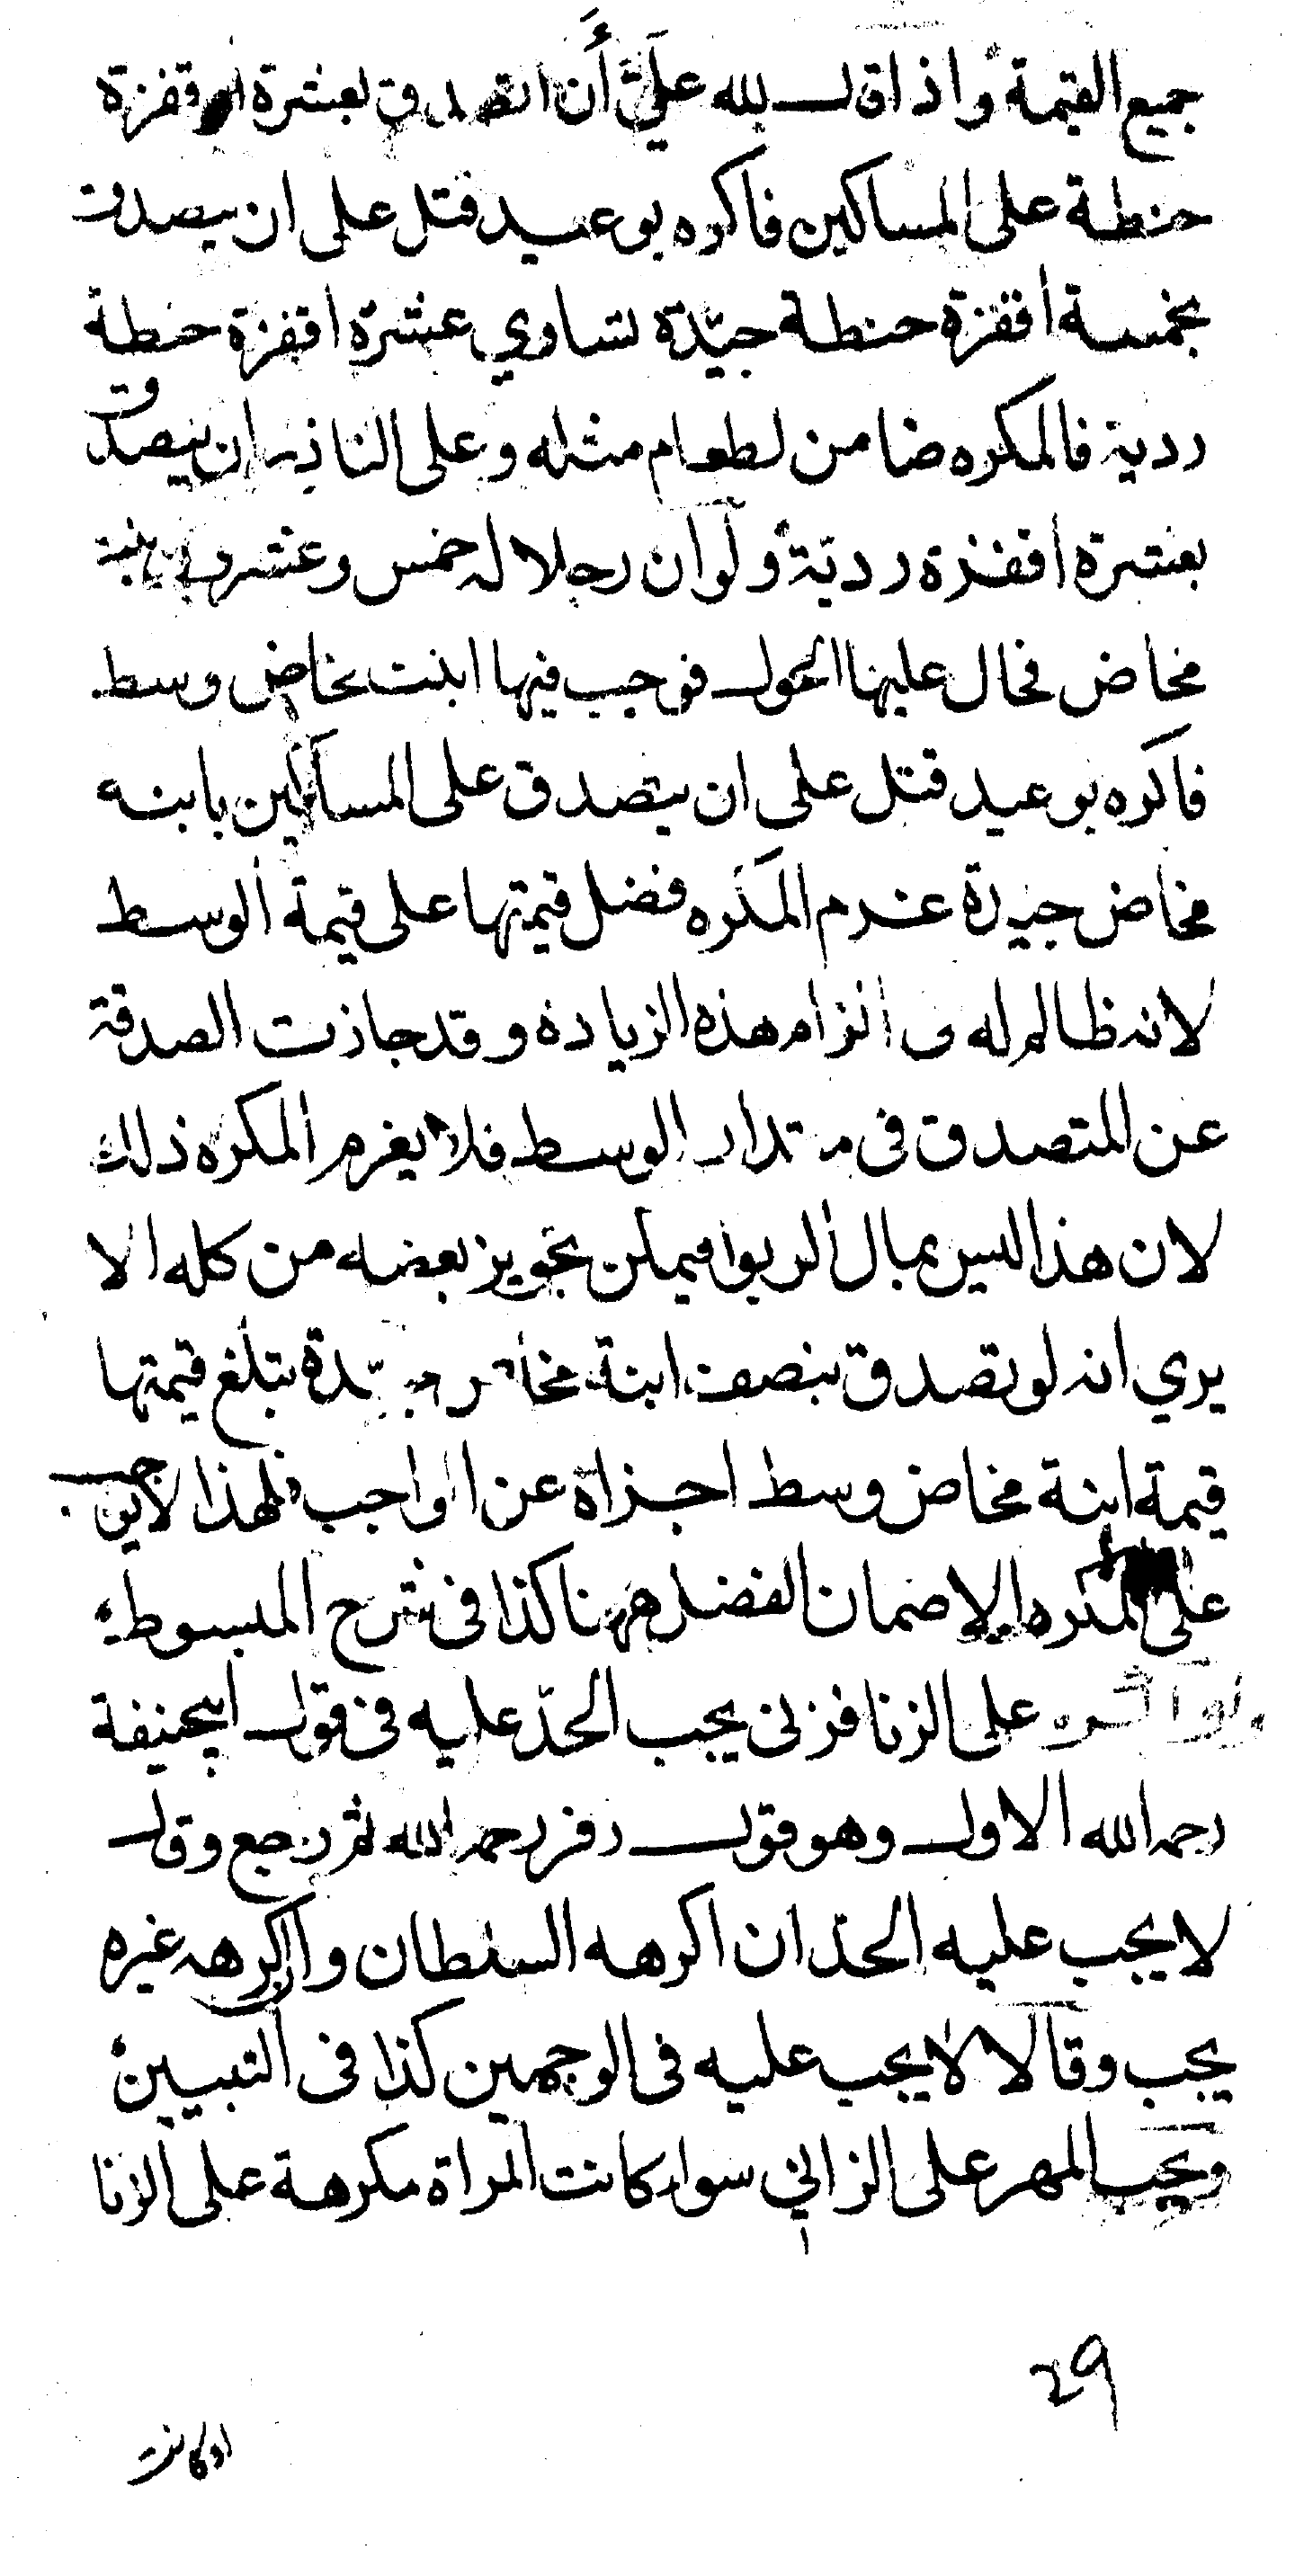 جميع القيمة واذا قال لله عليّ أن اتصدق بعشرة اقفزة
حنطة على المساكين فاكره بوعيد قتل على ان يتصدق
بخمسة اقفزة حنطة جيّدة تساوي عشرة اقفزة حنطة
ردية فالمكره ضامن لطعام مثله وعلى الناذر ان يتصدق
بعشرة اقفزة رديّة ولو ان رجلا له خمس وعشرون ابنة
مخاض فحال عليها الحول فوجب فيها ابنت مخاض وسط
فاكره بوعيد قتل على ان يتصدق على المساكين بابنه
مخاض جيدة غرم المكره فضل قيمتها على قيمة الوسط
لانه ظالم له في الزام هذه الزيادة وقد جازت الصدقة
عن المتصدق فى مقدار الوسط فلا يغرم المكره ذلك
لان هذا ليس بمال الربوا فيمكن تجويز بعضه من كله الا
يري انه لو تصدق بنصف ابنة مخاض جيّدة تبلغ قيمتها
قيمة ابنة مخاض وسط اجزاه عن الواجب فلهذا لا يوجب
على المكره الا ضمان الفضل ههنا كذا فى شرح المبسوط
ولو اكره على الزنا فزنى يجب الحدّ عليه فى قول ابيحنيفة
رحمه الله الاول وهو قول زفر رحمه الله ثم رجع وقال
لا يجب عليه الحدّ ان اكرهه السلطان وان اكرهه غيره
يجب وقالا لا يجب عليه فى الوجهين كذا فى التبيين
ويجب المهر على الزاني سواء كانت المراة مكرهة على الزنا
٢٩
او كانت